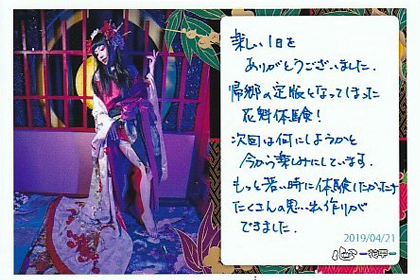 楽しい1日を
ありがとうございました.
帰郷の定版となってしまった
花魁体験!
次回は何にしようかと
今から楽しみにしています.
もっと若い時に体験したかったけど
たくさんの思い出作りが
できました.
2019/04/21
心-花雫-